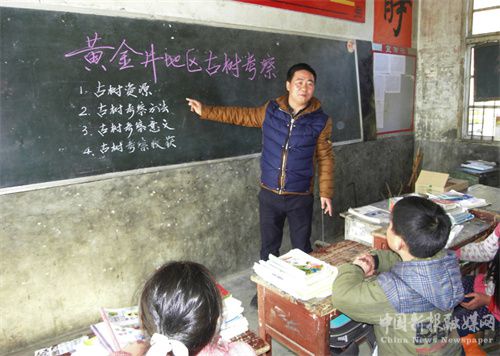 黄金井地区古树考察
1. 古树资源
2. 古树考察方法
3. 古树考察意义
4. 古树考察收获
静
中国新报融媒网
China News and Newspaper